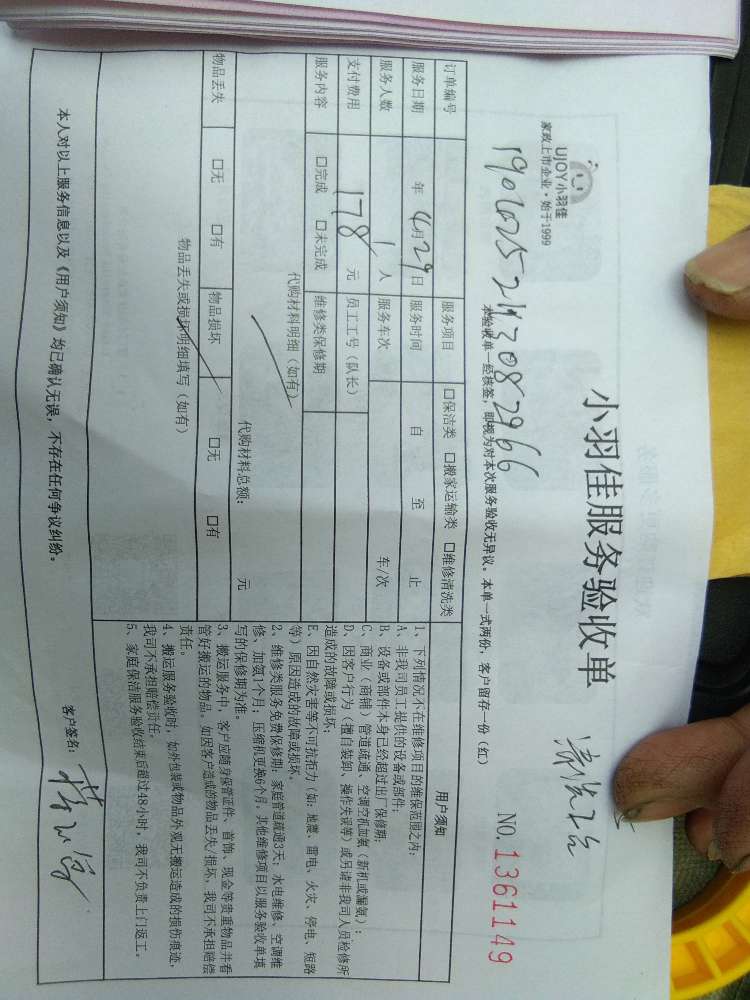 小羽佳服务验收单
UJOY小羽佳
家政上市企业·始于1999
NO.1361149
本验收单一经核签，即视为对本次服务验收无异议。本单一式两份，客户留存一份（红）
订单编号
服务项目 □保洁类 □搬家运输类 □维修清洗类
服务日期 年 4月29日 服务时间 自 至 止
服务人数 1 人 服务车次 车/次
支付费用 178 元 员工工号（队长）
服务内容 □完成 □未完成 维修类保修期
代购材料明细（如有）
代购材料总额： 元
物品丢失 □无 □有 物品损坏 □无 □有
物品丢失或损坏明细填写（如有）
用户须知
1、下列情况不在维修项目的维保范围之内：
A、非我司员工提供的设备或部件；
B、设备或部件本身已经超过出厂保修期；
C、商业（商铺）管道疏通、空调空机加氨（新机或漏氨）；
D、因客户行为（擅自装卸、操作失误等）或另请非我司人员检修所
造成的故障或损坏；
E、因自然灾害等不可抗拒力（如：地震、雷电、火灾、停电、短路
等）原因造成的故障或损坏。
2、维修类服务免费保修期：家庭管道疏通3天；水电维修、空调维
修、加氨1个月；压缩机更换6个月，其他维修项目以服务验收单填
写的保修期为准。
3、搬运服务中，客户应随身保管证件、首饰、现金等贵重物品并看
管好搬运的物品。如因客户造成的物品丢失/损坏，我司不承担赔偿
责任。
4、搬运服务验收时，如外包装或物品外观无搬运造成的损伤痕迹，
我司不承担赔偿责任。
5、家庭保洁服务验收结束后超过48小时，我司不负责上门返工。
本人对以上服务信息以及《用户须知》均已确认无误，不存在任何争议纠纷。
客户签名：